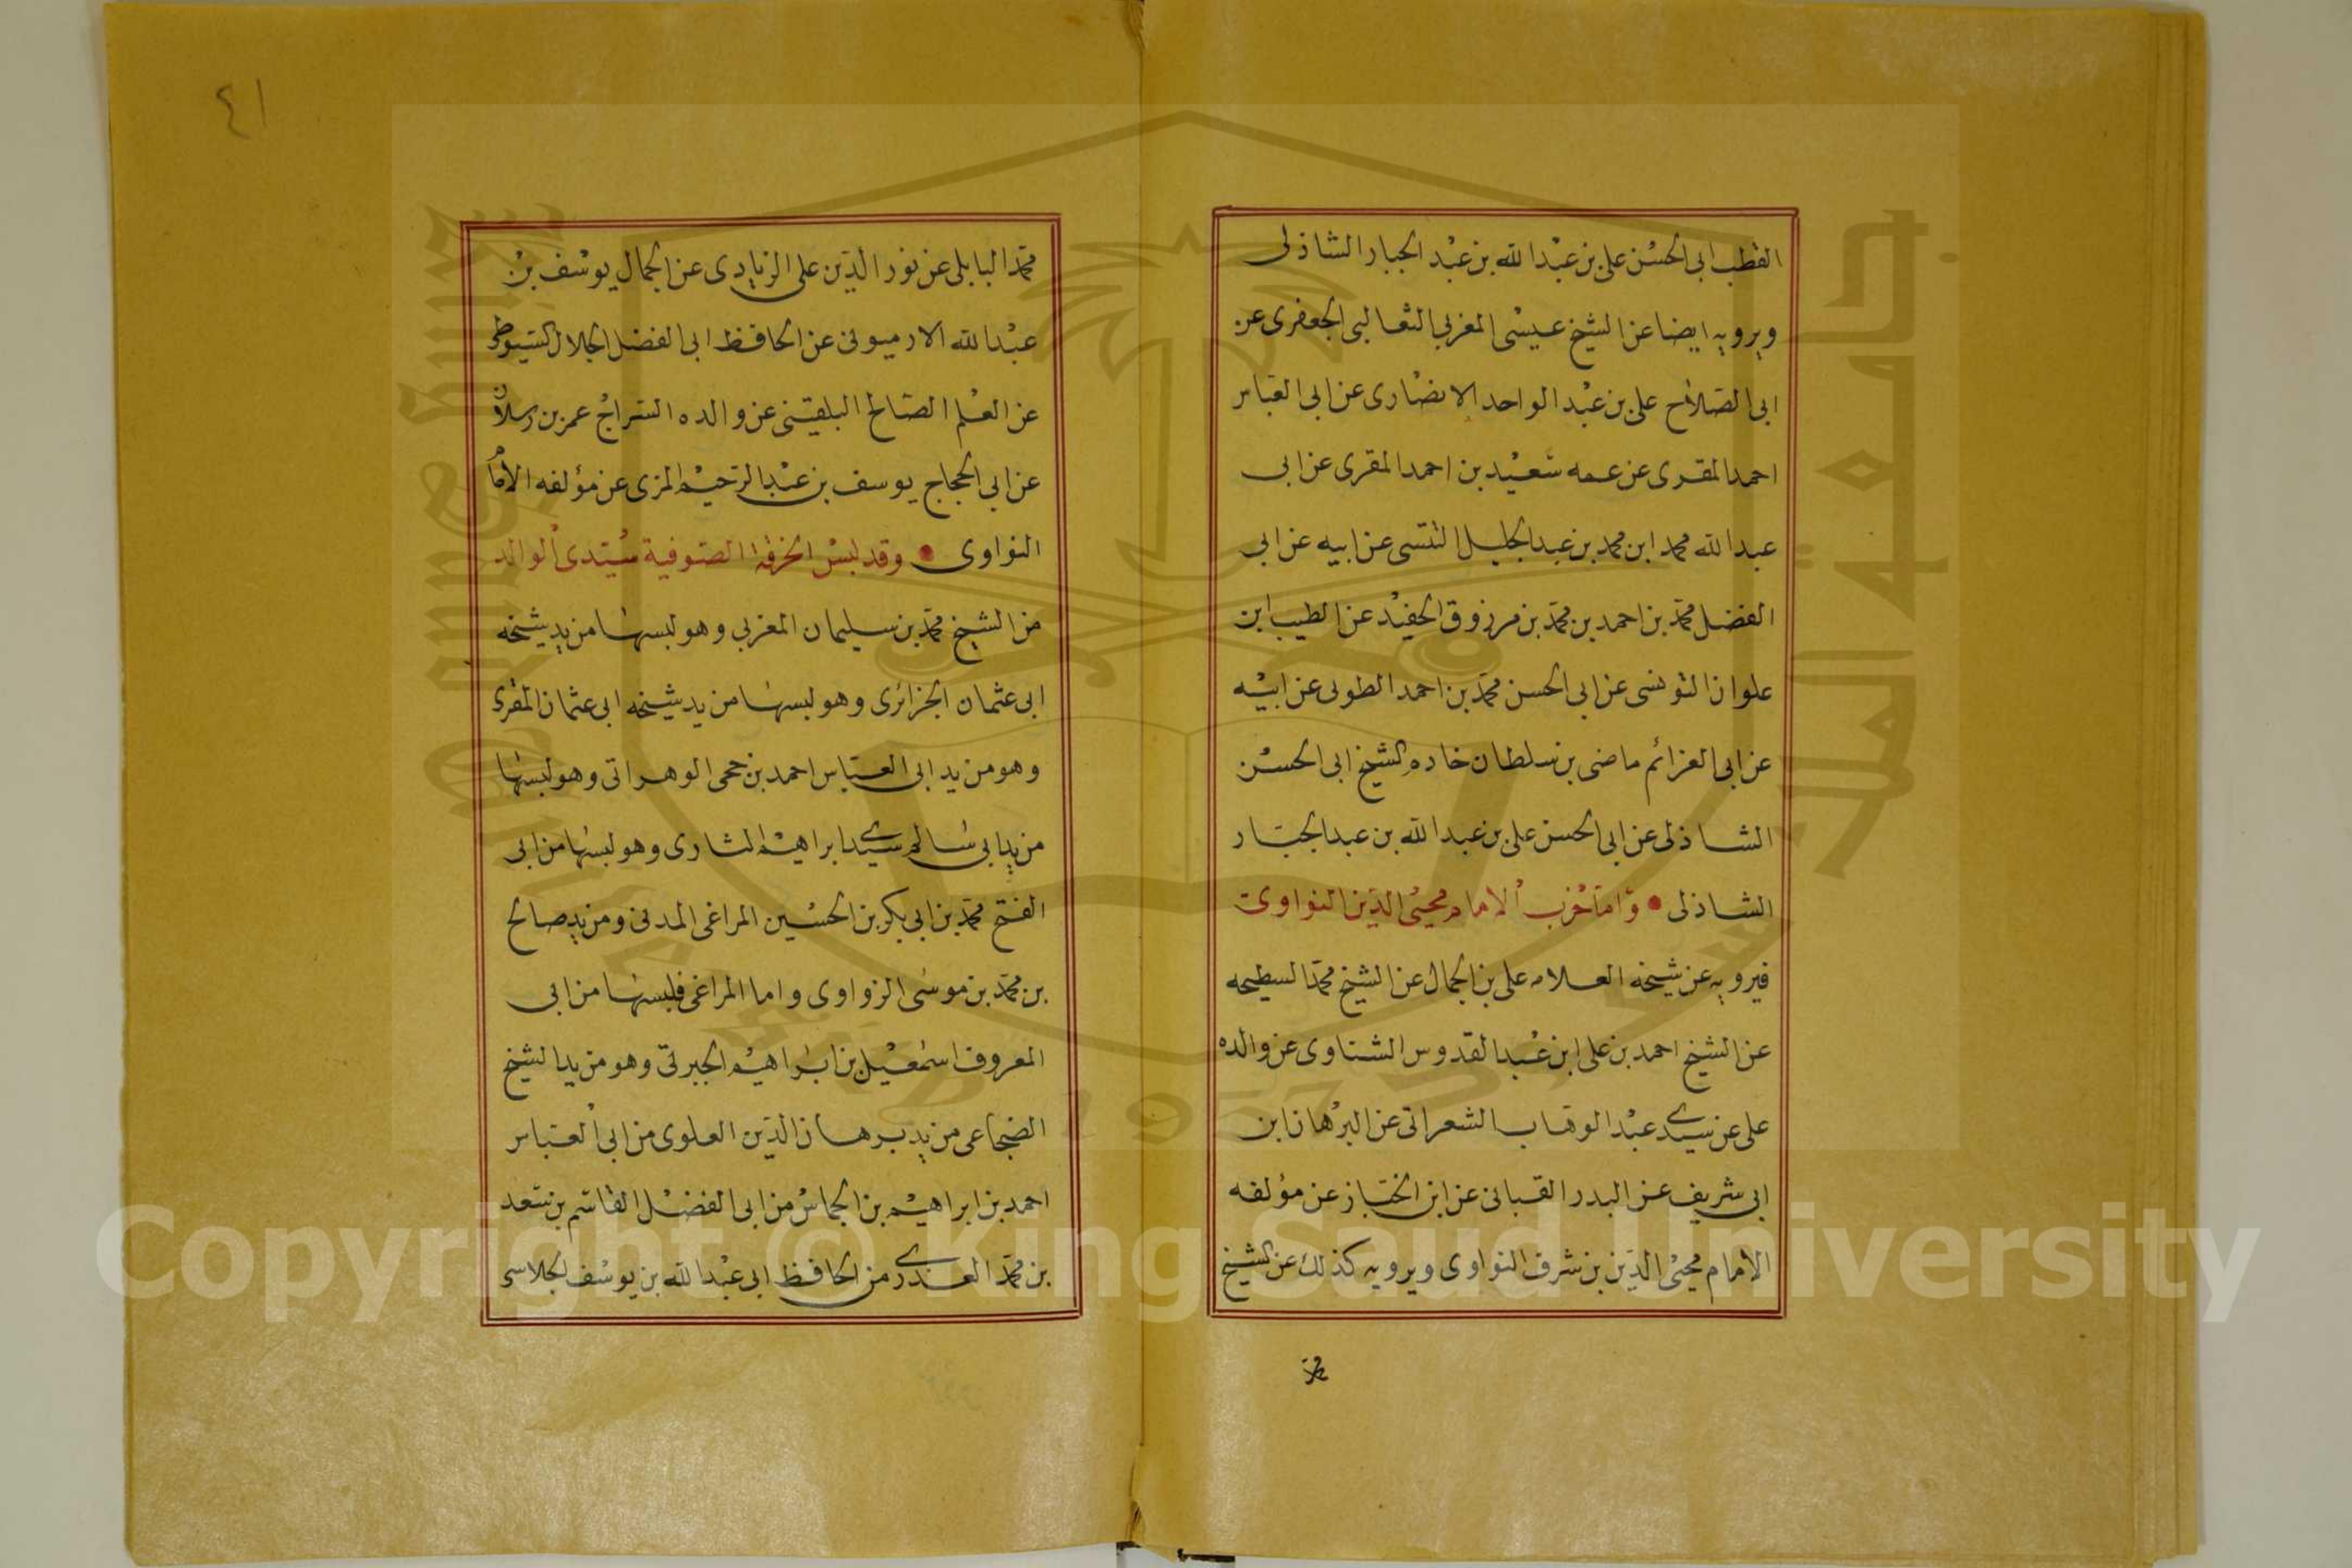 القطب ابى الحسن على بن عبد الله بن عبد الجبار الشاذلى
ويرويه ايضا عن الشيخ عيسى المغربى الثعالبى الجعفرى عن
ابى الصلاح على بن عبد الواحد الانصارى عن ابى العباس
احمد المقرى عن عمه سعيد بن احمد المقرى عن ابى
عبد الله محمد ابن محمد بن عبد الجليل التنسى عن ابيه عن ابى
الفضل محمد بن احمد بن محمد بن مرزوق الحفيد عن الطيب ابن
علوان التونسى عن ابى الحسن محمد بن احمد الطونى عن ابيه
عن ابى العزائم ماضى بن سلطان خادم الشيخ ابى الحسن
الشاذلى عن ابى الحسن على بن عبد الله بن عبد الجبار
الشاذلى • واما حزب الامام محيى الدين النواوى
فيرويه عن شيخه العلامه على بن الجمال عن الشيخ محمد السطيحه
عن الشيخ احمد بن على ابن عبد القدوس الشناوى عن والده
على عن سيدى عبد الوهاب الشعرانى عن البرهان ابن
ابى شريف عن البدر القبانى عن ابن الخباز عن مؤلفه
الامام محيى الدين بن شرف النواوى ويرويه كذلك عن الشيخ
محمد
٤١
محمد البابلى عن نور الدين على الزيادى عن الجمال يوسف بن
عبد الله الارميونى عن الحافظ ابى الفضل الجلال السيوطى
عن العلم الصالح البلقينى عن والده السراج عمر بن رسلان
عن ابى الحجاج يوسف بن عبد الرحيم المزى عن مؤلفه الامام
النواوى • وقد لبس الخرقة الصوفية سيدى الوالد
من الشيخ محمد بن سليمان المغربى وهو لبسها من يد شيخه
ابى عثمان الجزائرى وهو لبسها من يد شيخه ابى عثمان المقرى
وهو من يد ابى العباس احمد بن حجى الوهرانى وهو لبسها
من يد ابى سالم سيدى ابراهيم التازى وهو لبسها من ابى
الفتح محمد بن ابى بكر بن الحسين المراغى المدنى ومن يد صالح
بن محمد بن موسى الزواوى واما المراغى فلبسها من ابى
المعروف اسمعيل بن ابراهيم الجبرتى وهو من يد الشيخ
الضجاعى من يد برهان الدين العلوى من ابى العباس
احمد بن ابراهيم بن الجماس من ابى الفضل القاسم بن سعد
بن محمد العذرى من الحافظ ابى عبد الله بن يوسف الخلاسى
جامعة الملك سعود
King Saud University
1957
Copyright © King Saud University